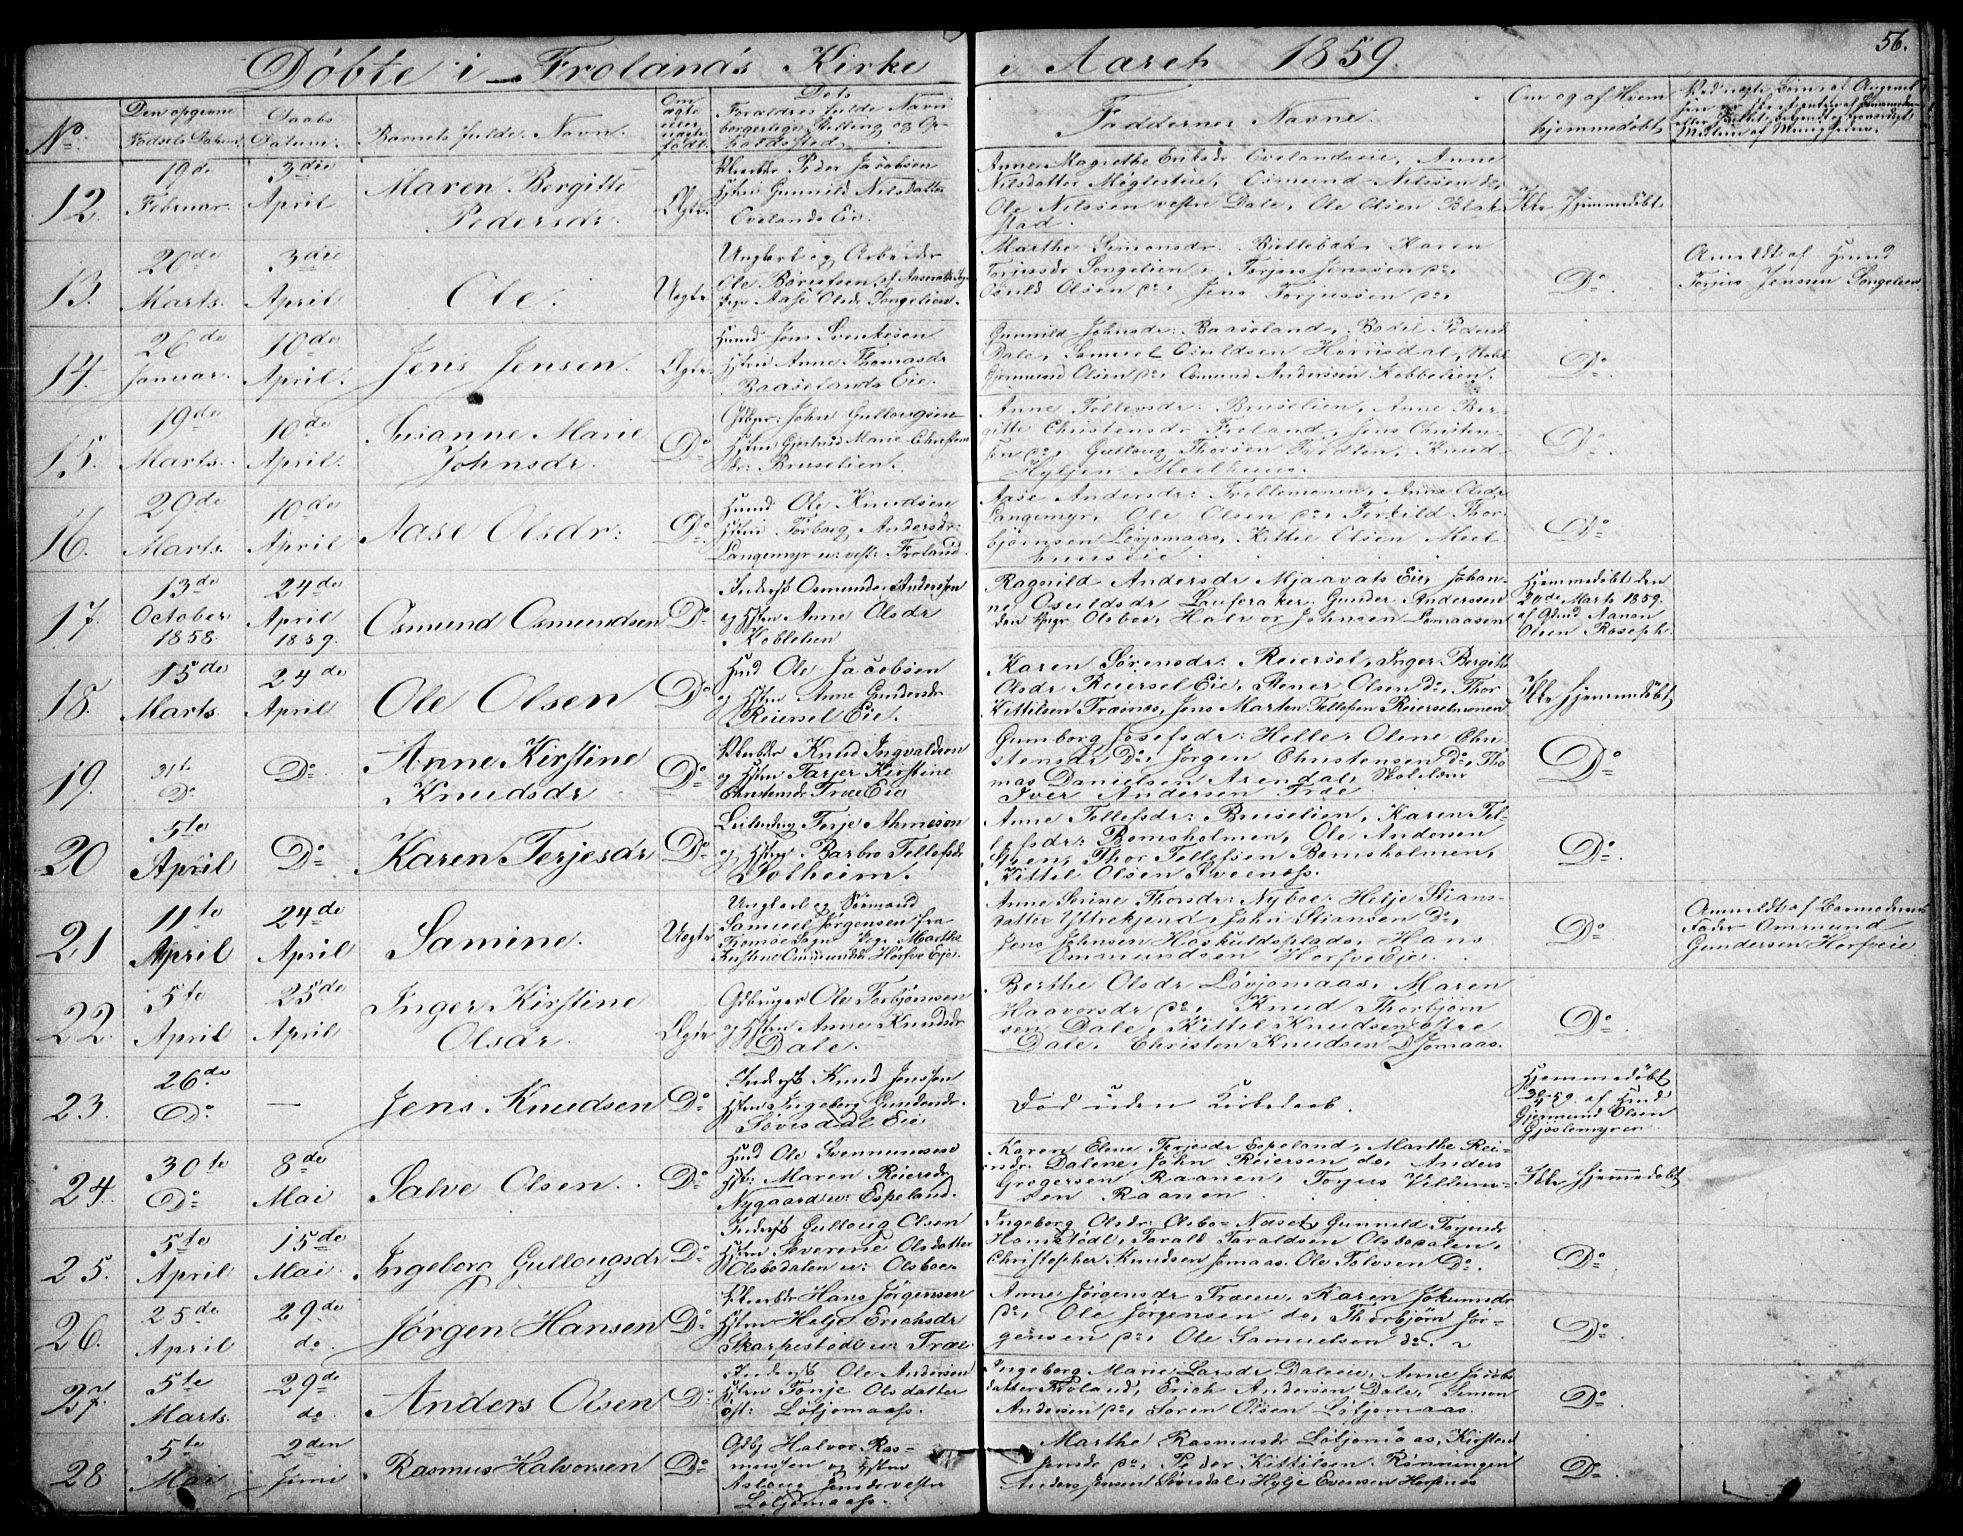 Döbte i Frolands Kirke i Aaret 1859.
56.
No.
Den opgivne Fødsels Datum.
Daabs Datum.
Barnets fulde Navn.
Om ægte eller uægte født.
Dets Forældres fulde Navn borgerlige Stilling og Opholdssted.
Faddernes Navne.
Om og af Hvem hjemmedöbt.
12.
19de Februar.
3die April
Maren Bergitte
Pedersdr.
Ægte.
Peder Jacobsen
Hstru Gunnild Nilsdatter
Ovelands Eie.
Anne Magrethe Eriksdr Ovelandseie, Anne
Nilsdatter Møglestue, Osmund Nilsøn do,
Ole Nilssen vestre Dale, Ole Olsen Blak-
stad.
Ikke hjemmedöbt
13.
20de Marts.
3die April
Ole.
Uegte
Ungkarl og Arbeider
Pige Aase Olsdr Songelien.
Marthe Simonsdr. Karen
Torjusdr Songelien, Torjus Jensøn do,
Osuld Olsen do, Jens Torjussøn do,
Do.
Anmeldt af Hmnd
Torjus Jensen Songelien
14.
26de Januar.
10de April.
Jens Jensen.
Ægte.
Hmd Jens Svenkesen
Hstru Anne Thomasdr
Baaselands Eie.
Gunnild Johnsdr: Baaseland, Bodil Pedersd
Dale, Samuel Osuldsen
Gjermund Olsen do, Osmund Anderssen Kobbelien.
Do.
15.
19de Marts.
10de April.
Susanne Marie
Johnsdr.
Do.
Gdbgr: John Gullovgsen
Hstru Gjertrud Marie Christens
dr: Bruselien.
Anne Tellefsdr: Bruselien, Anne Ber-
gitte Christensdr Froland, Jens Christen-
sen do, Gullovg Thorsen Tvedten, Knud
Do.
16.
29de Marts.
10de April
Aase Olsdr:
Do.
Hmd Ole Knudsen
Hstru Torborg Andersdr:
Langemyr u: vest: Froland.
Aase Andersdr: Trellemoen, Anne Olsdr
Langemyr, Ole Olsen do, Terkild Thor-
bjørnsen Løvjomaas, Kittil Olsen Meel-
huuseie.
Do
17.
13de October 1858
24de April 1859.
Osmund Osmundsen
Do.
Inderst Osmund Anderssen
og Hstru Anne Olsdr
Kobbelien
Ragnild Andersdr Mjaavats Eie, Johan-
ne Osuldsdr Lauvraker, Gunder Anderssen
Olsboe, Halvor Johnsen Lomaasen
Hjemmedöbt den
20de Marts 1859.
af Gdmd Aanon
Olsen Roseph.
18.
15de Marts.
24de April
Ole Olsen
Do
Hmd Ole Jacobsen
og Hstru Anne Gundersdr
Reiersel Eie.
Karen Sörensdr: Reiersel, Inger Bergitte
Olsdr Reiersel Eie, Stener Olsen do, Thor
Kittilsen Trænæs, Jens Marten Tellefsen Reierselmoen
Ikke hjemmedöbt
19.
31te Do
Do
Anne Kirstine
Knudsdr
Do
Knud Ingvaldsen
og Hstru Tarjer Kirstine
Christensdr Træe Eie
Gumborg Josefsdr: Helle, Olene Chri-
stensdr do, Jörgen Christensen do, Tho-
mas Danielsen Arendal,
Iver Andersen Træe.
Do
20
5te April
Do
Karen Terjesdr
Do
Leilending Terje Ahnesen
og Hstru Barbro Tellefsdr
Solheim.
Anne Tellefsdr: Bruselien, Karen Tel-
lefsdr: Bomsholmen, Ole Andersen
Steen, Thor Tellefsen Bomsholmen,
Kittel Olsen Sveenæss.
Do.
21
11te April
24de April
Samine.
Uegte
Ungkarl og Sömand
Samuel Jörgensen fra
Tromøe Sogn Pige Marthe
Kirstine Ommundsdr Horfve Eje.
Anne Serine Thorsdr: Nyboe, Helje Stians-
datter Yttrekjend, John Stiansen do,
Jens Johnsen Haskuldsplads, Hans
Ommundsen Horfve Eje.
Do
Anmeldt af Barnemoderens
Fader Ommund
Gundersen Horfveeie
22.
5te April
25de April
Inger Kirstine
Olsdr.
Ægte
Gdbruger Ole Torbjørnsen
og Hstru Anne Knudsdr
Dale.
Berthe Olsdr Løvjomaas, Maren
Haaversdr do, Knud Thorbjørn
sen Dale, Kittel Knudsen Østre
Dale, Christen Knudsen Jomaas.
Do
23.
26de Do
—
Jens Knudsen
Do
Inderst Knud Jenssen
Hstru Ingeborg Gundersdr.
Løvisdal Eie
Död uden Kirkedaab.
Hjemmedöbt
30/4 59 af Hmd
Gjermund Olsen
Gjøslemyren
24.
30te Do
8de Mai
Salve Olsen.
Do
Hmd Ole Svennumsen
Hst: Maren Reiersdr
Nygaard u: Espeland.
Karen Elene Terjesdr Espeland, Marthe Rei-
ersdr. Dalene, John Reiersen do, Anders
Gregersen Raanen, Torjus Villum-
sen Raanen
Ikke hjemmedöbt
25.
5te April
15de Mai
Ingeborg Gullougsdr
Do
Inderst Gulloug Olsen
Hstru Severine Olsdatter
Olsbodalen u: Olsboe
Ingeborg Olsdr: Olsbo-Næset, Gunnild Torjusdr
Tarald Taraldsen Olsbodalen,
Christopher Knudsen Jomaas, Ole Tolvsen Do.
Do
26.
25de April
29de do.
Jørgen Hansen
Do
Hans Jørgensen
Hstru Helje Erichsdr
Skarpestödl u: Træe
Anne Jørgensdr Træeie, Karen Jokumsdr
do, Ole Jörgensen do, Thorbjørn Jör-
gensen do, Ole Samuelsen do.
Do.
27.
5te Marts.
29de do.
Anders Olsen
Do
Inderst Ole Andersen
Hstru Tonje Olsdatter
øst: Løljomaass.
Ingeborg Marie Larsdr Daleeie, Anne Jacobs
datter Froland, Erich Andersen Dale, Simon
Andersen do, Søren Olsen Løljomaas.
Do
28
5te Mai
2den Juni
Rasmus Halvorsen
Do
Gdbr Halvor Ras-
mussen og Hstru
Aslaug Jensdr vestre
Løljomaass.
Marthe Rasmusdr Løljomaas, Kirsten
Jensdr do, Peder Kittilsen Rönningen
Anders Jensen Løvisdal, Hylje Evensen Horfnæs
Do